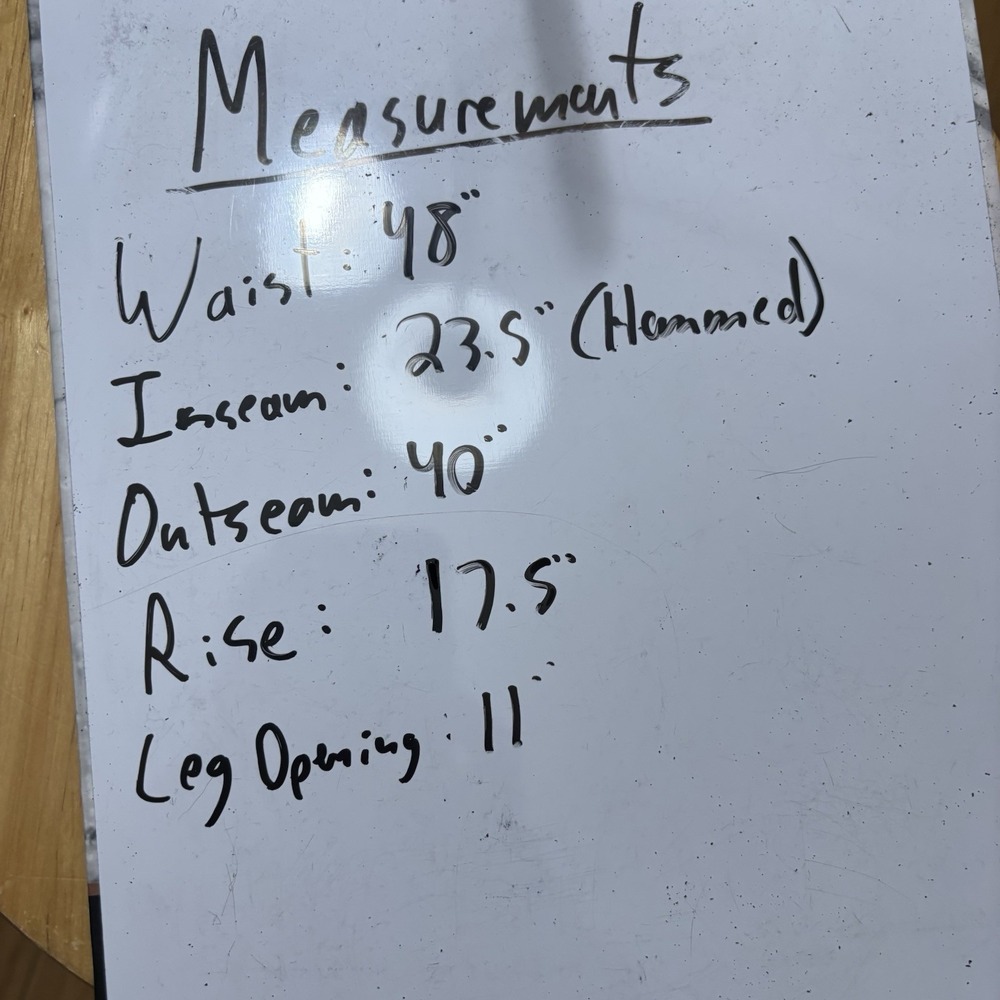 Measurements
Waist: 48"
Inseam: 23.5" (Hemmed)
Outseam: 40"
Rise: 17.5"
Leg Opening. 11"